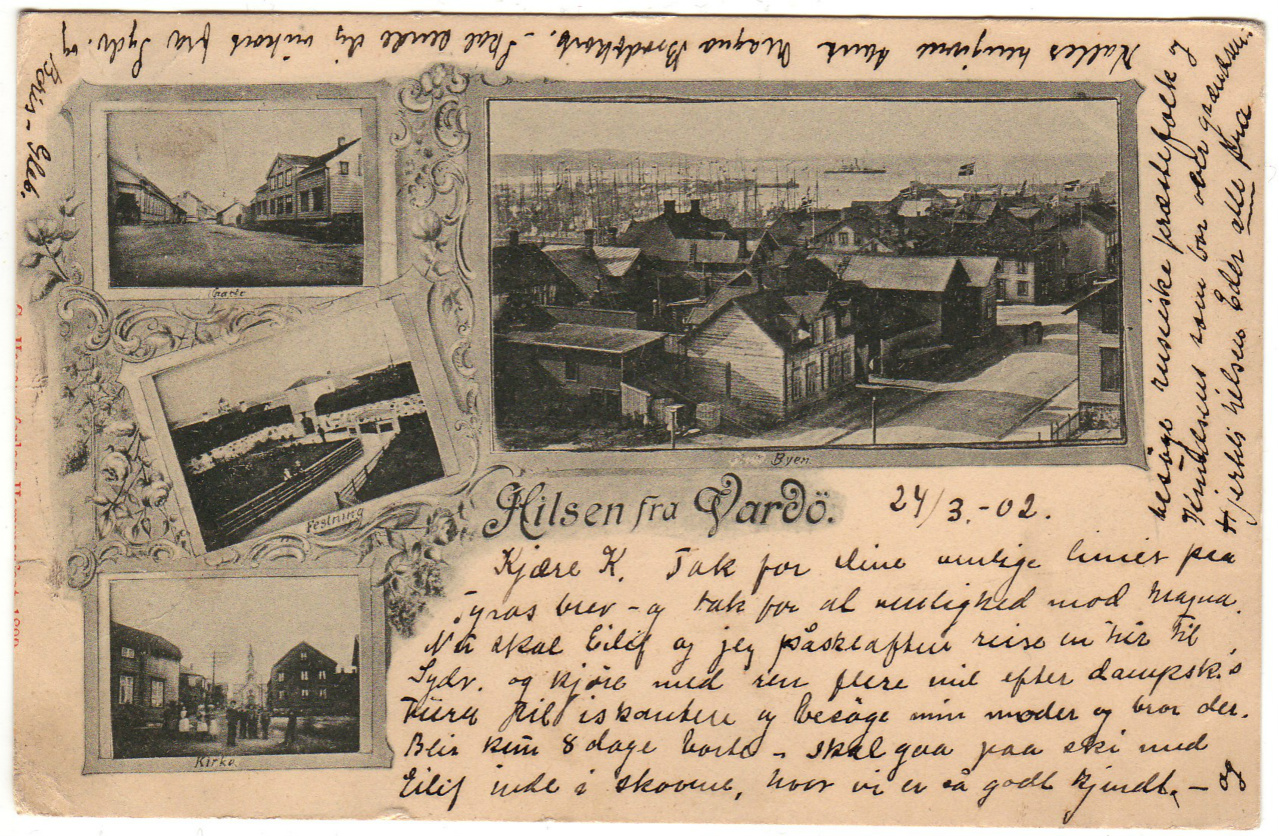 Gade
Festning
Kirke
Byen
Hilsen fra Vardö.
24/3.-02.
Kjære K. Tak for dine venlige linier paa
Tyras brev - og tak for al venlighed mod Magna.
Nu skal Eilif og jeg påskeaften reise en tur til
Sydv. og kjøre med ren flere mil efter dampsk.s
til iskantere og besöge min moder og bror der.
Blir kun 8 dage borte - skal gaa paa ski med
Eilif inde i skovene, hvor vi er så godt kjendt, - og
besöge russiske præstefolk og
som bor over grændsen.
Hjertelig hilsen Eder alle fra
Kalles hengivne tante Magna Brodtkorb. - Skal sende dig brikort fra Sydv. og
Boris - Gleb.